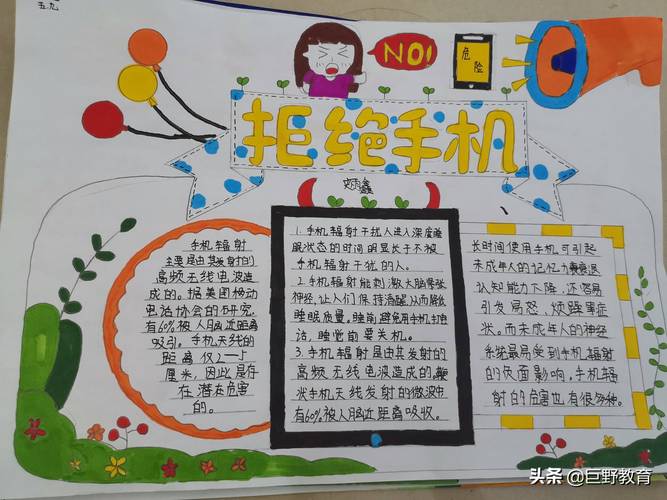 五九
NO!
危险
拒绝手机
手机辐射
主要是由其发射的
高频无线电波造
成的。据美国移动
电话协会的研究,
有60%被人脑近距离
吸引。手机天线的
距离仅2—5
厘米,因此是存
在潜在危害
的。
1.手机辐射干扰人进入深度睡
眠状态的时间明显长于不被
手机辐射干扰的人。
2.手机辐射能刺激大脑紧张
神经,让人们保持清醒从而降低
睡眠质量,睡前避免用手机打电
话,睡觉前要关机。
3.手机辐射是由其发射的
高频无线电波造成的,
状手机天线发射的微波中
有60%被人脑近距离吸收。
长时间使用手机可引起
未成年人的记忆力衰退
认知能力下降,还容易
引发焦虑、烦躁等症
状。而未成年人的神经
系统最易受到手机辐射
的负面影响,手机辐
射的危害也有很多种。
头条 @巨野教育